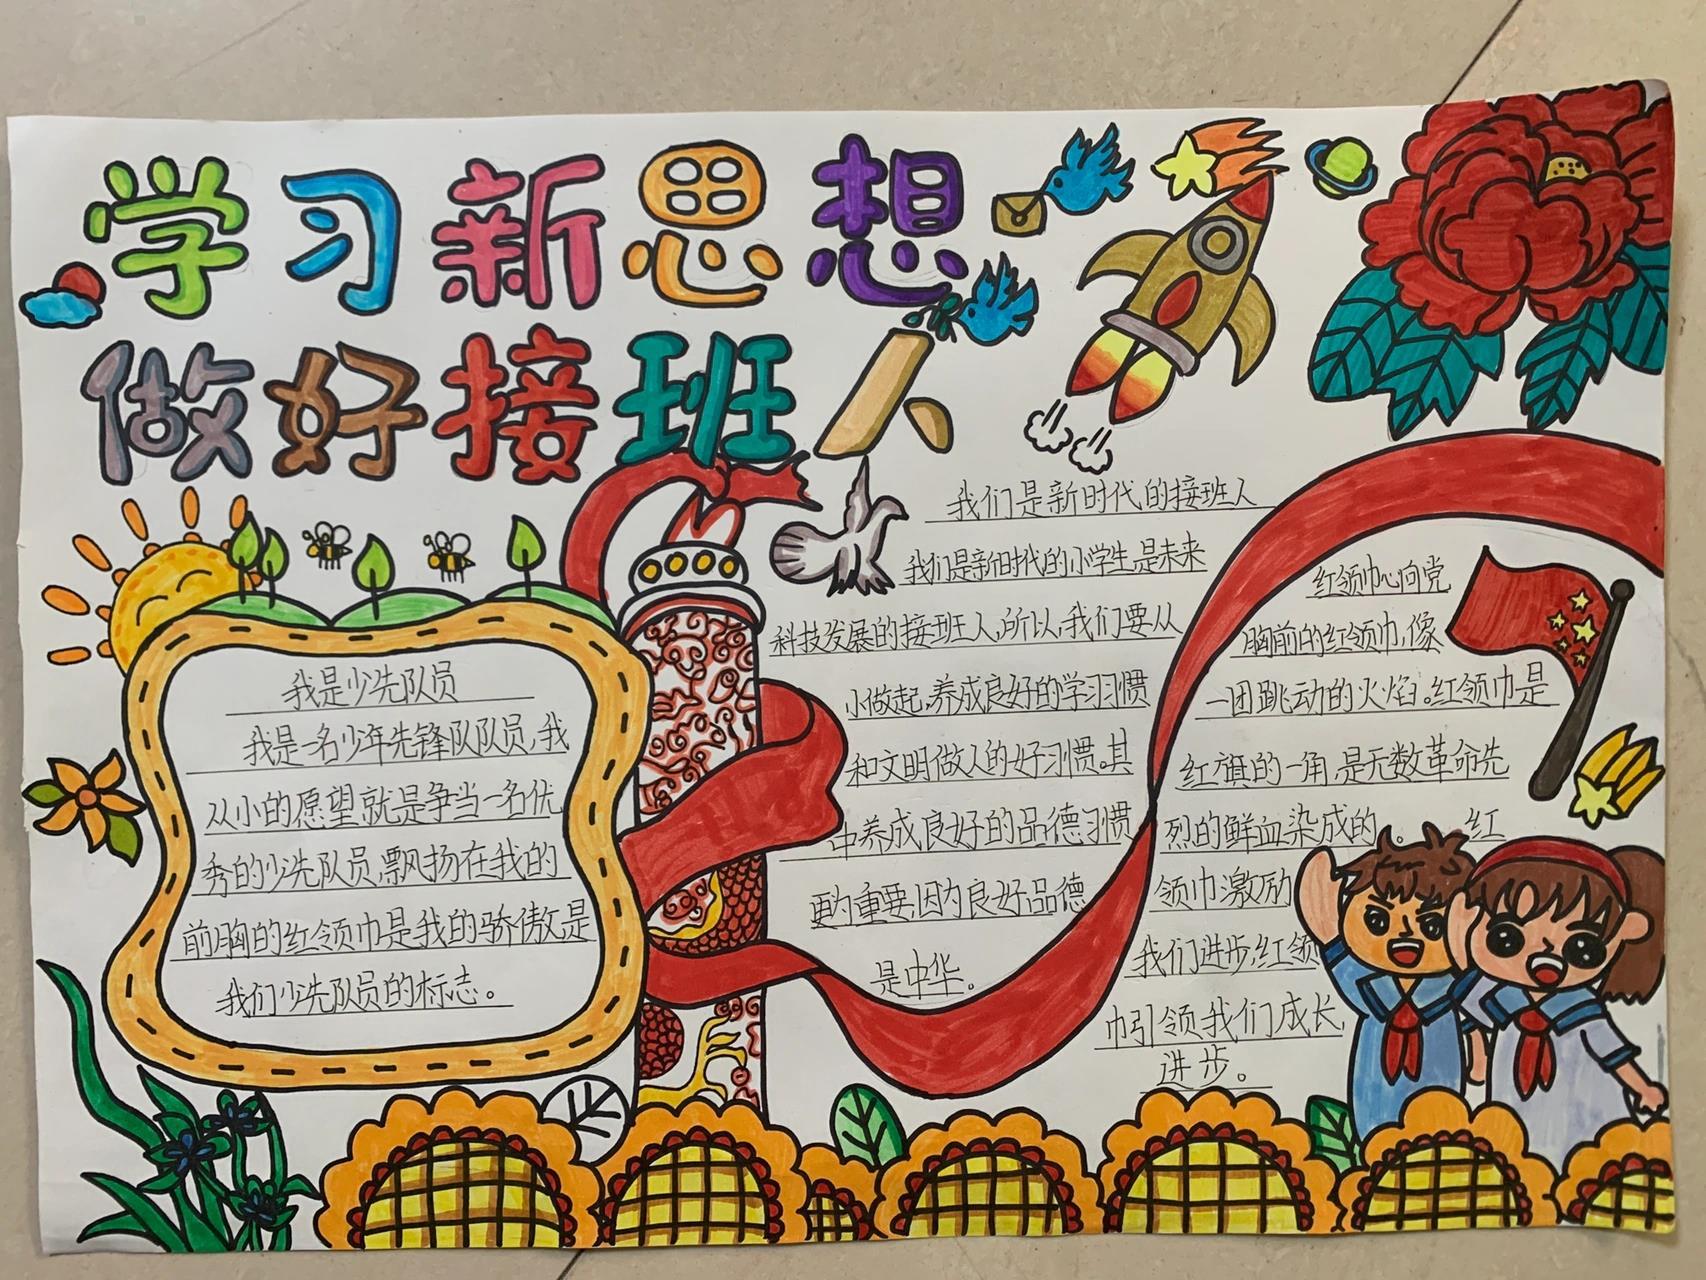 学习新思想
做好接班人
我是少先队员
我是一名少年先锋队队员,我
从小的愿望就是争当一名优
秀的少先队员,飘扬在我的
前胸的红领巾是我的骄傲,是
我们少先队员的标志。
我们是新时代的接班人
我们是新时代的小学生,是未来
科技发展的接班人,所以,我们要从
小做起,养成良好的学习习惯
和文明做人的好习惯。其
中养成良好的品德习惯
更为重要,因为良好品德
是中华。
红领巾心向党
胸前的红领巾,像
一团跳动的火焰。红领巾是
红旗的一角,是无数革命先
烈的鲜血染成的。 红
领巾激励
我们进步,红领
巾引领我们成长,
进步。